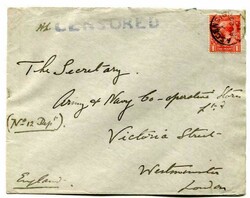 CENSORED
The Secretary.
Army & Navy Co-operative Store
Ltd
(No 12 Dept)
Victoria Street
Westminster
England.
London